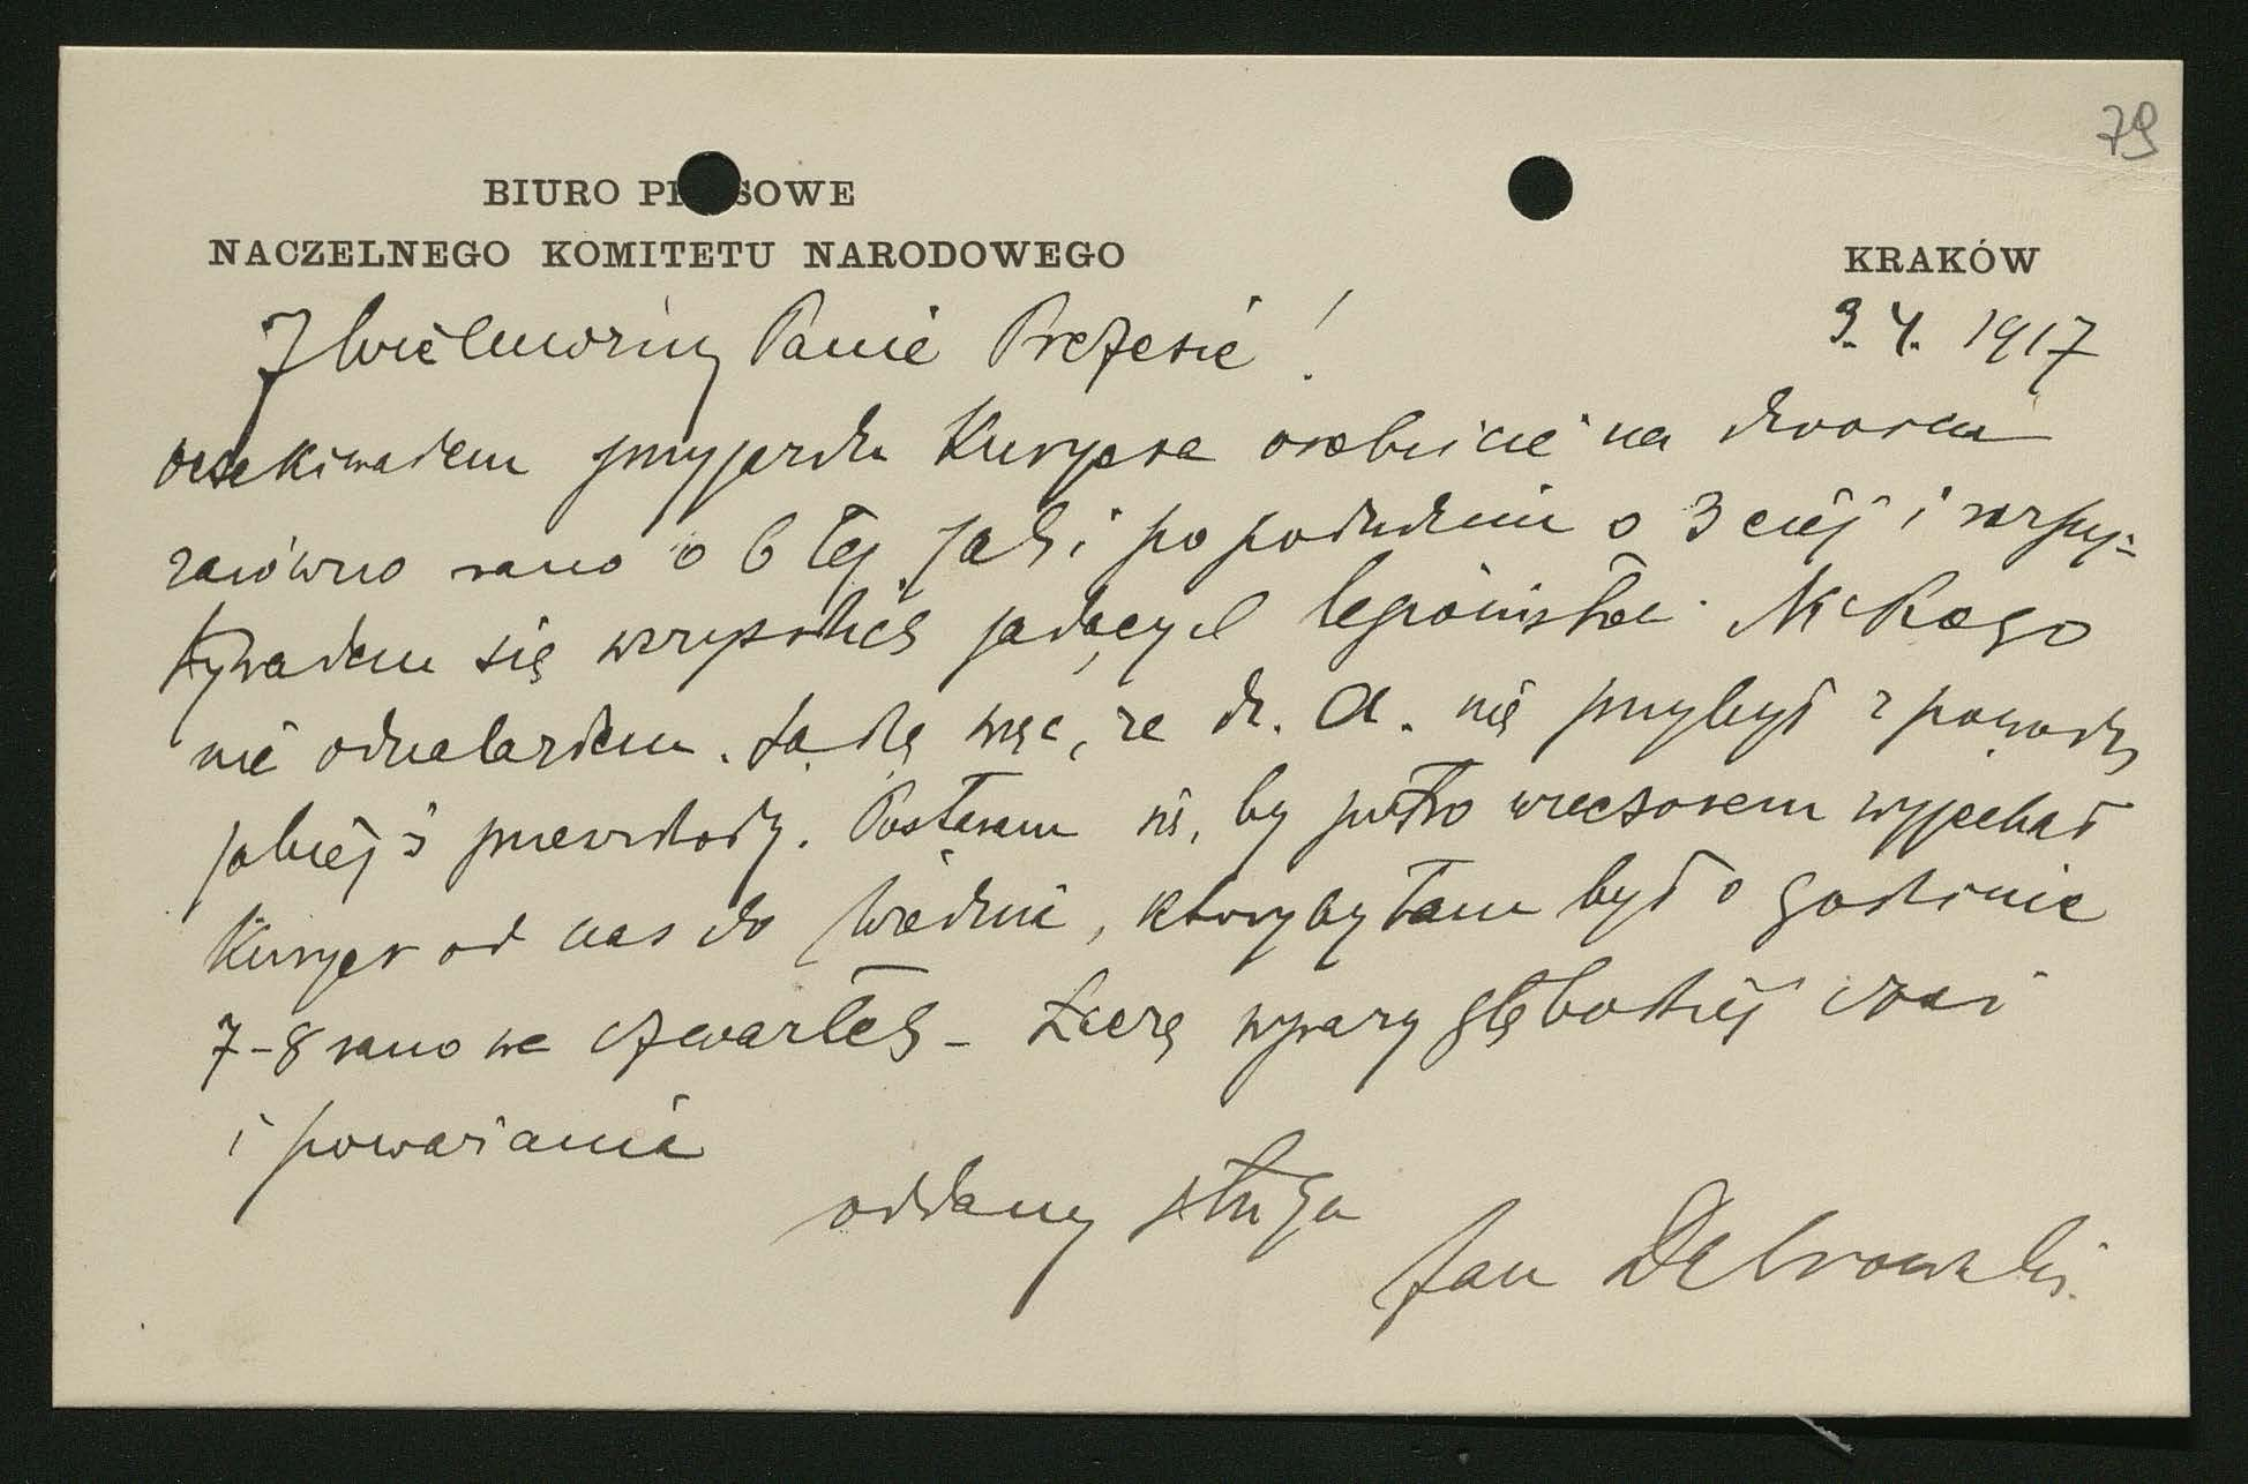 79
BIURO PRASOWE
NACZELNEGO KOMITETU NARODOWEGO
KRAKÓW
3. 4. 1917
JWielmożny Panie Prezesie!
oczekiwałem przyjazdu Kuryera osobiście na dworcu
zarówno rano o 6 tej jak i po południu o 3 ciej i rozpy-
tywałem się wszystkich jadących legionistów. Nikogo
nie odnalazłem. Sądzę więc, że dr. A. nie przybył z powodu
jakiejś przeszkody. Postaram się, by jutro wieczorem wyjechał
Kuryer od nas do Wiednia, któryby tam był o godzinie
7-8 rano we czwartek - Łączę wyrazy głębokiej czci
i poważania
oddany sługa
Jan Dąbrowski.